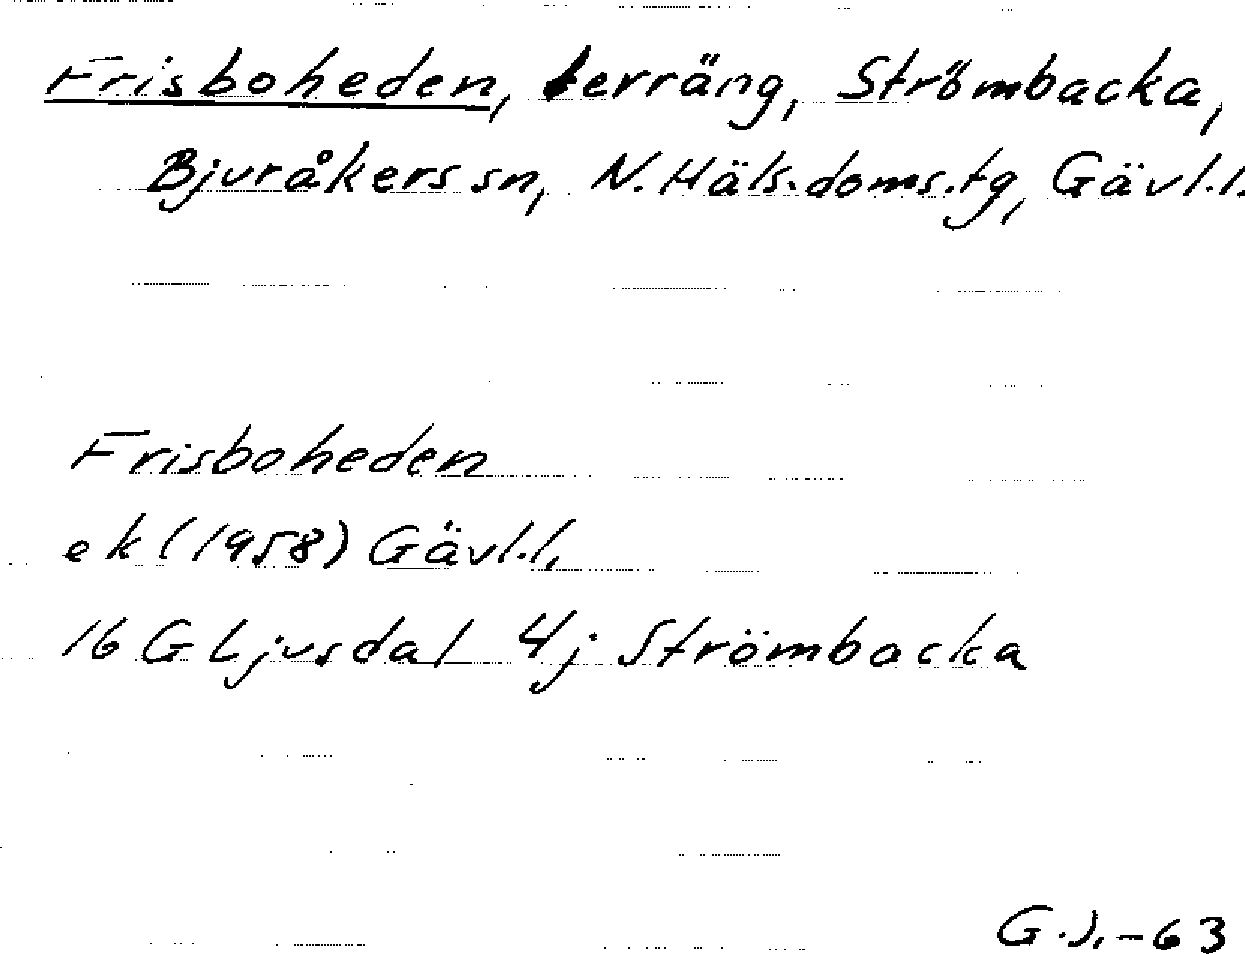 Frisboheden, terräng, Strömbacka,
Bjuråkers sn, N. Häls. doms. tg, Gävl.l.
Frisboheden
ek (1958) Gävl.l.
16 G Ljusdal 4j Strömbacka
G.J.-63